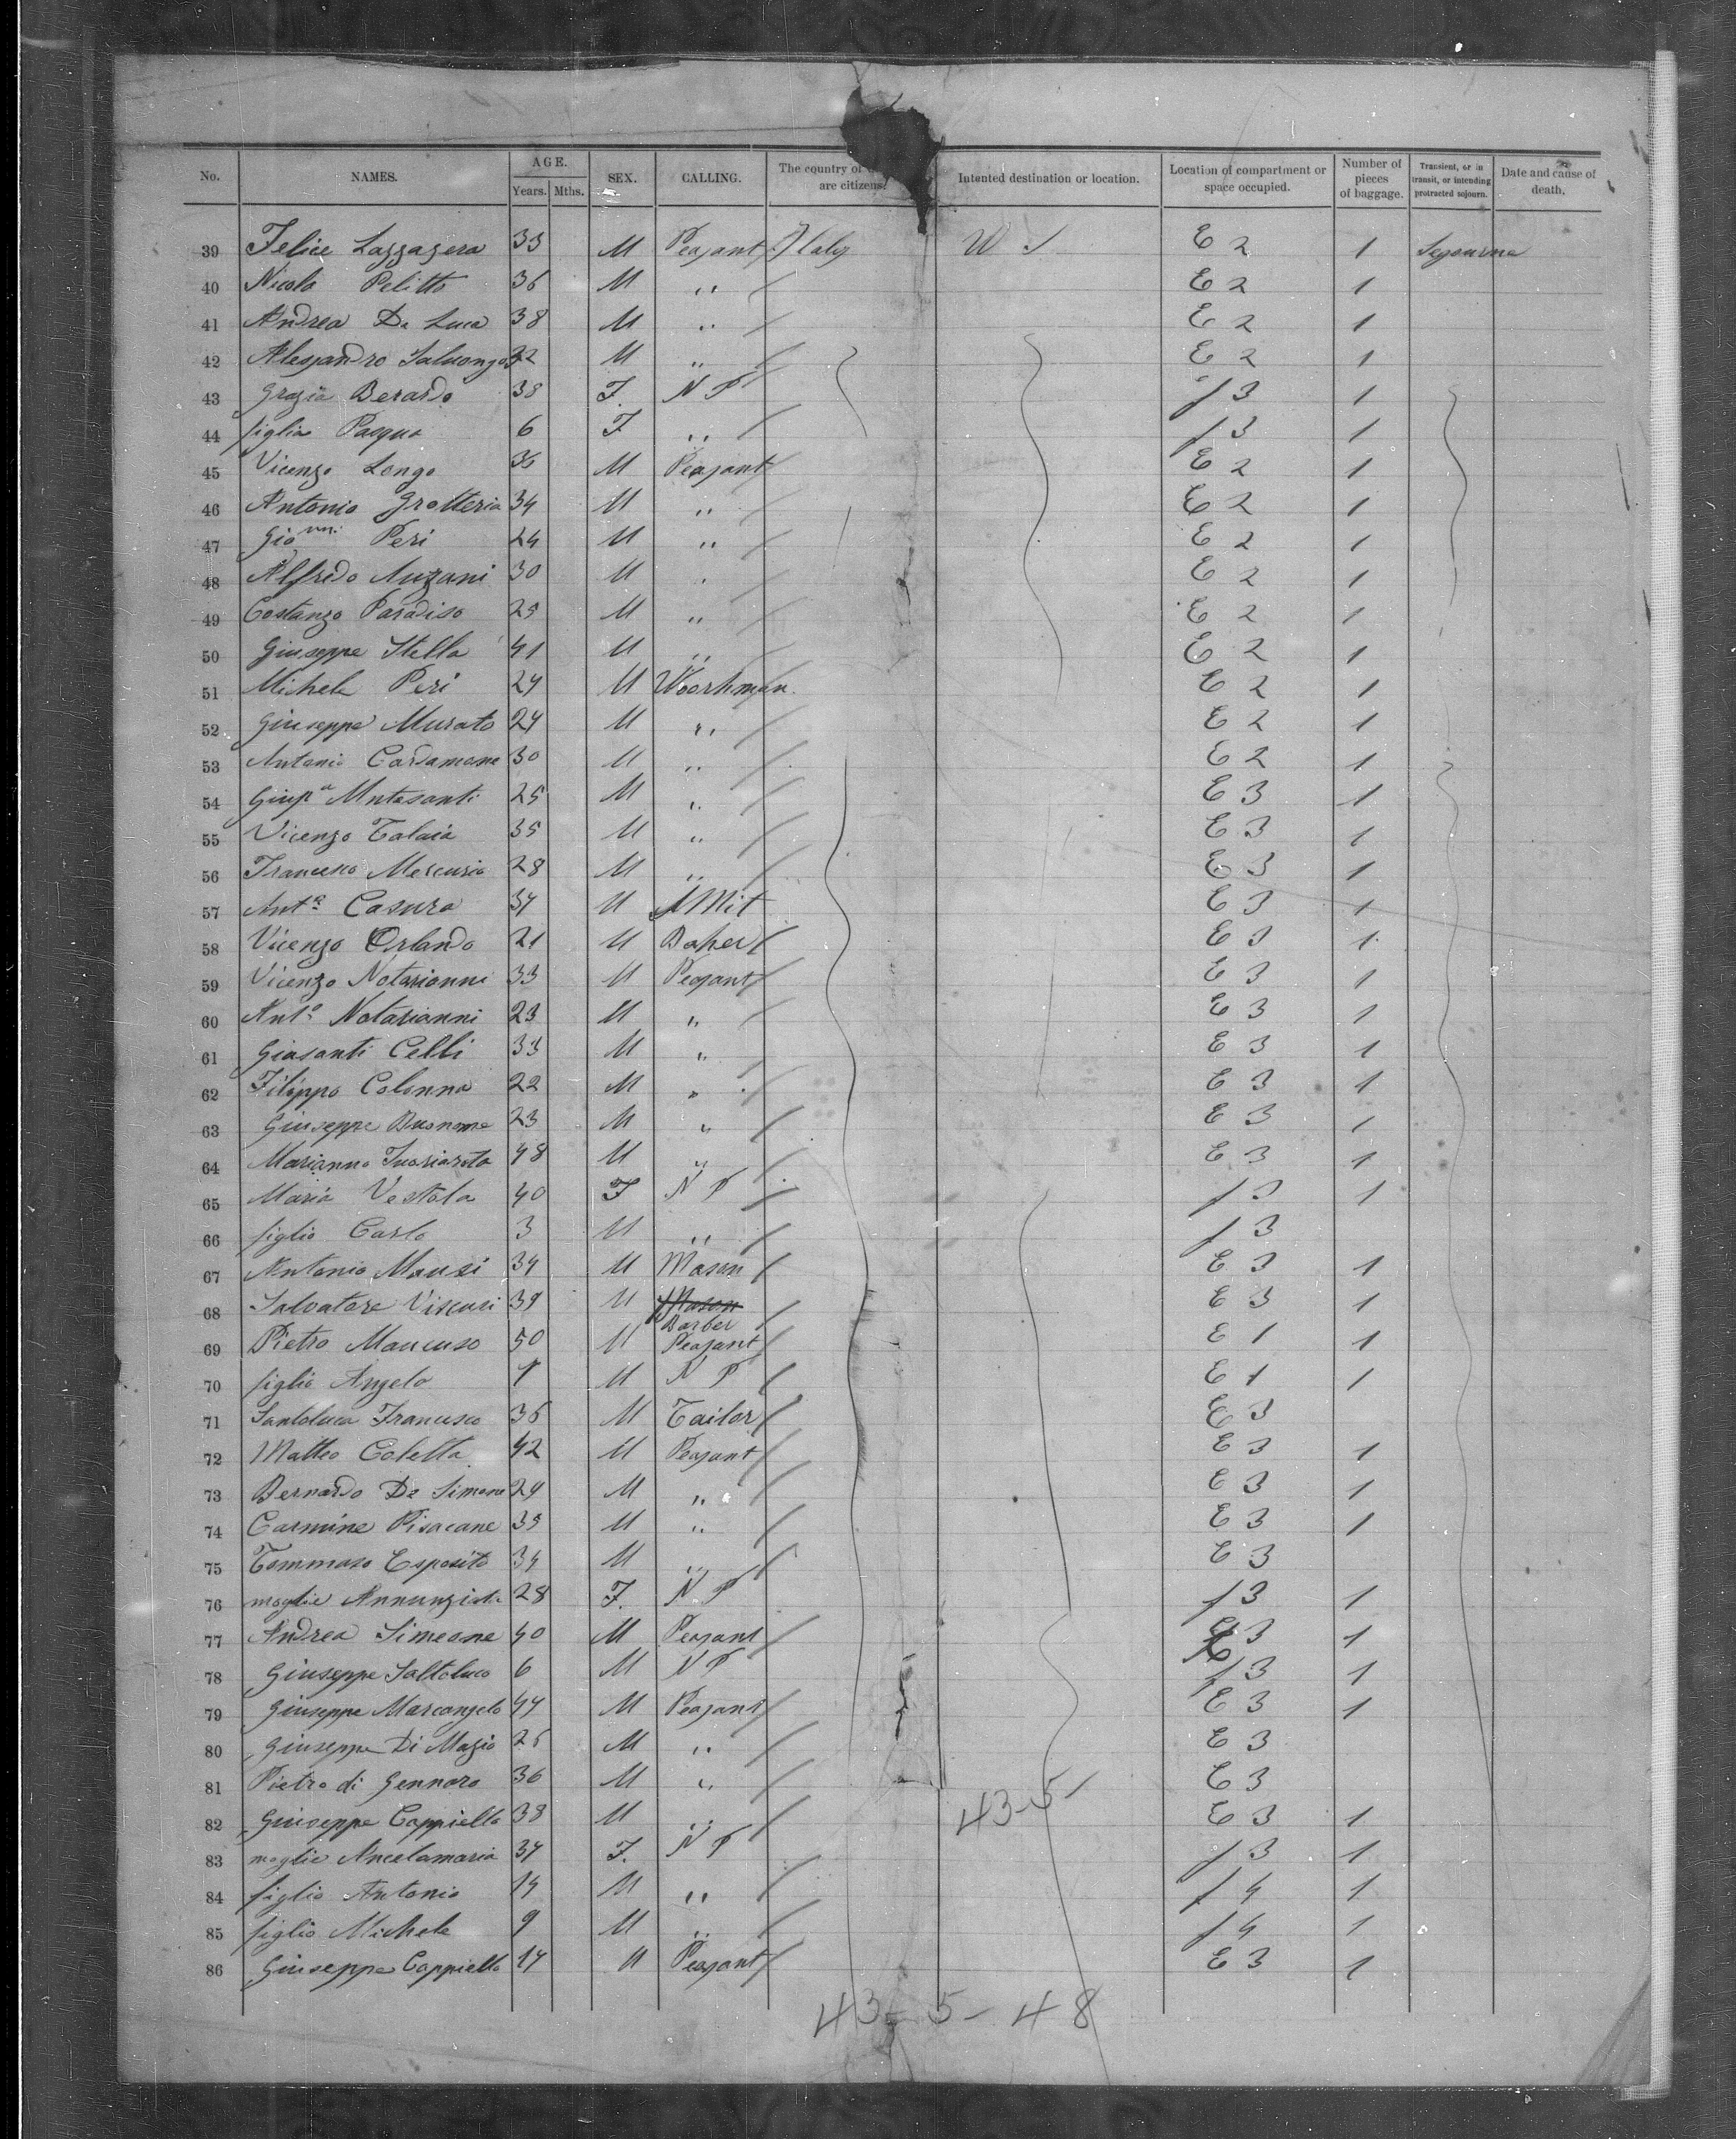 No. NAMES. AGE. Years. Mths. SEX. CALLING. The country of are citizens. Intented destination or location. Location of compartment or space occupied. Number of pieces of baggage. Transient, or in transit, or intending protracted sojourn. Date and cause of death.
39 Felice Lazzazera 33 M Peasant Italy E 2 1
40 Nicola Pelitto 36 M ,, E 2 1
41 Andrea De Luca 38 M ,, E 2 1
42 Alessandro 32 M ,, E 2 1
43 Grazia Berardo 38 F. N P f 3 1
44 figlia Pasqua 6 F ,, f 3 1
45 Vicenzo Longo 36 M Peasant E 2 1
46 Antonio Grotteria 34 M ,, E 2 1
47 Gio nni Peri 24 M ,, E 2 1
48 Alfredo Auzani 30 M ,, E 2 1
49 Costanzo Paradiso 25 M ,, E 2 1
50 Giuseppe Stella 41 M ,, E 2 1
51 Michele Peri 24 M Woorkman. E 2 1
52 Giuseppe Murato 24 M ,, E 2 1
53 Antonio Cardamone 30 M ,, E 2 1
54 25 M ,, E 3 1
55 Vicenzo Talaia 35 M ,, E 3 1
56 Francesco Mercurio 28 M ,, E 3 1
57 Ant° Casura 34 M SMit E 3 1
58 Vicenzo Orlando 21 M Baker E 3 1
59 Vicenzo Notarianni 33 M Peasant E 3 1
60 Ant° Notarianni 23 M ,, E 3 1
61 Giosanti Celli 33 M ,, E 3 1
62 Filippo Colonna 22 M ,, E 3 1
63 Giuseppe Buonome 23 M ,, E 3 1
64 Marianno 48 M ,, E 3 1
65 Maria Vestola 40 F N P f 3 1
66 figlio Carlo 3 M ,, f 3
67 Antonio Mausi 34 M Mason E 3 1
68 Salvatore Viscusi 39 M Mason Barber E 3 1
69 Pietro Mancuso 50 M Peasant E 1 1
70 figlio Angelo M N P E 1 1
71 Santoluca Francesco 36 M Tailor E 3
72 Matteo Coletta 42 M Peasant E 3 1
73 Bernardo De Simone 24 M ,, E 3 1
74 Carmine Pisacane 35 M ,, E 3 1
75 Tommaso Esposito 34 M ,, E 3
76 moglie Annunziata 28 F. N P f 3 1
77 Andrea Simeone 40 M Peasant E 3 1
78 Giuseppe Saltoluco 6 M N P f 3 1
79 Giuseppe Marcangelo 44 M Peasant E 3 1
80 Giuseppe Di Mazio 25 M ,, E 3
81 Pietro di Gennaro 36 M ,, E 3
43-5-
82 Giuseppe Cappiello 38 M ,, E 3 1
83 moglie Ancelamaria 34 F. N P f 3 1
84 figlio Antonio 14 M ,, f 4 1
85 figlio Michele 9 M ,, f 4 1
86 Giuseppe Cappiello 14 M Peasant E 3 1
43-5-48